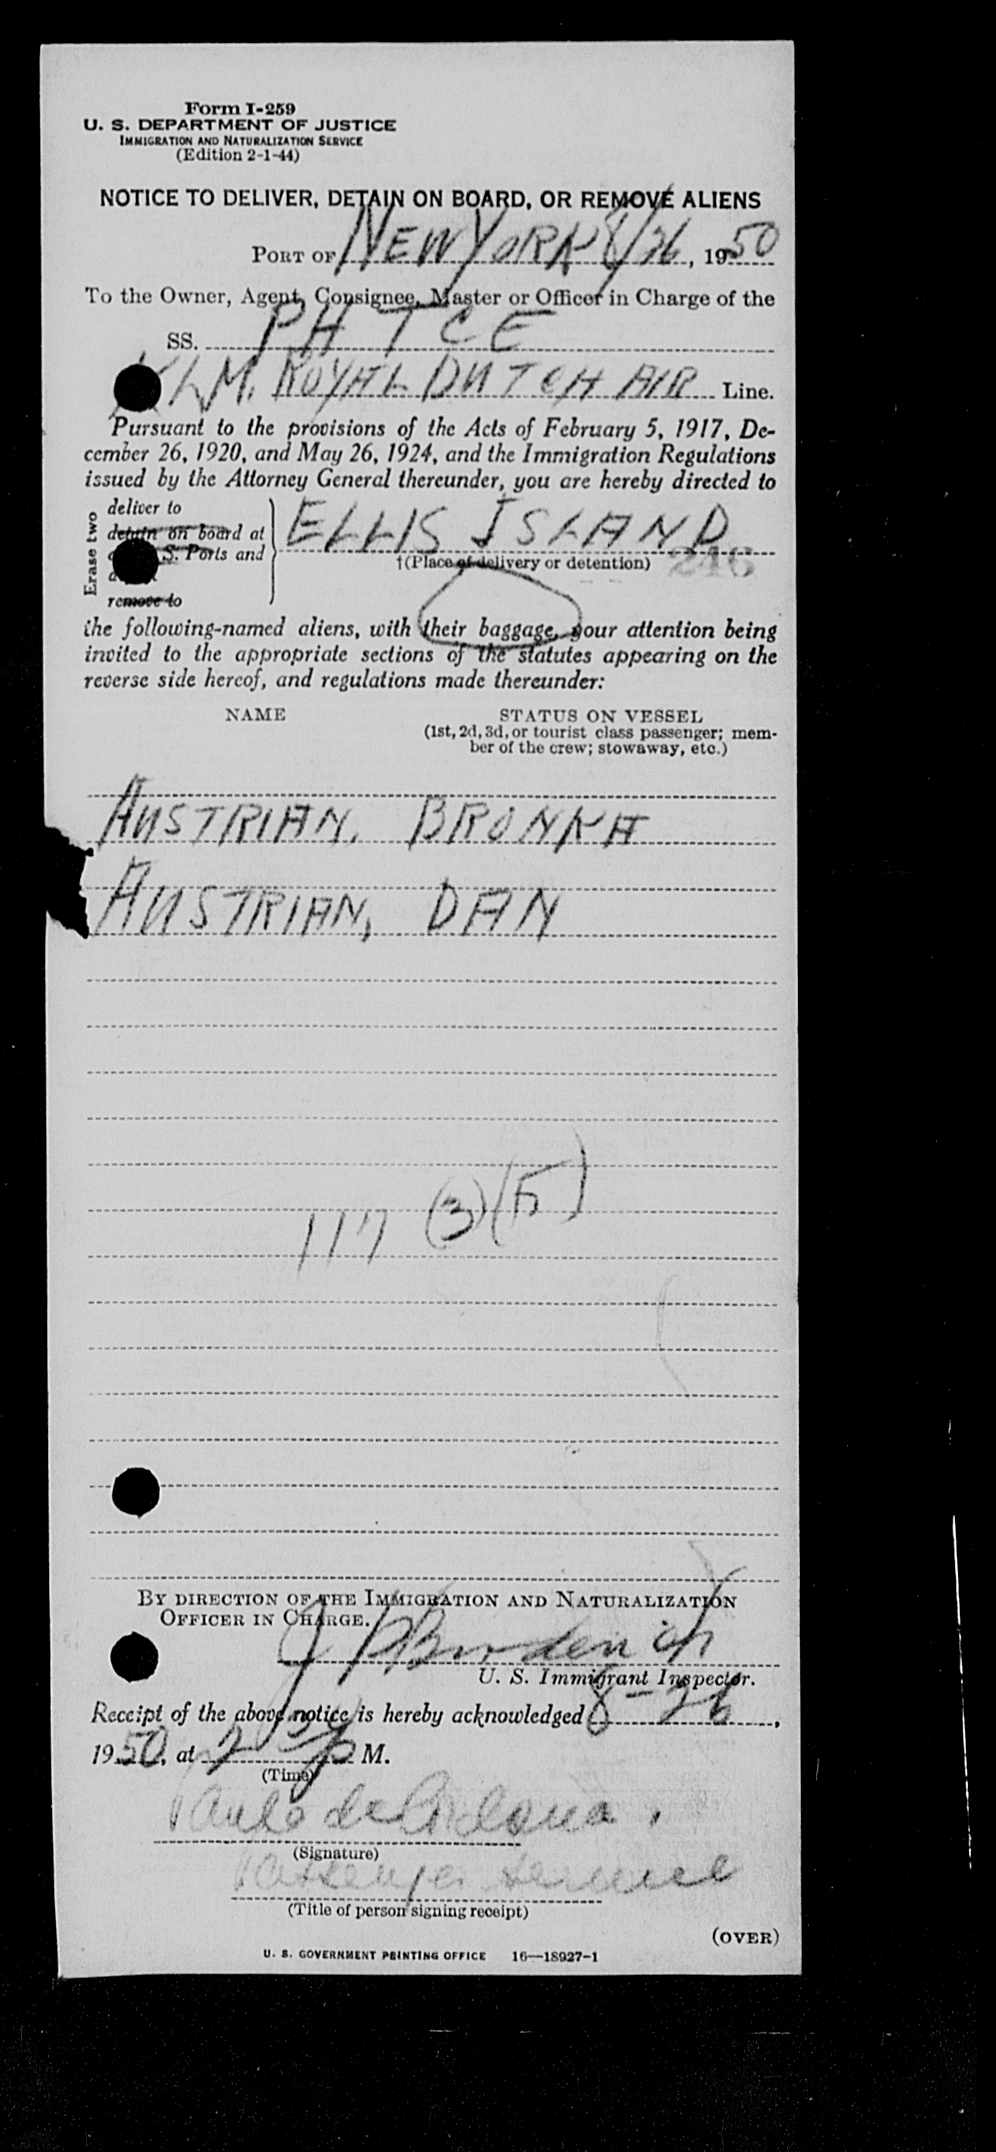 Form I-259
U. S. DEPARTMENT OF JUSTICE
IMMIGRATION AND NATURALIZATION SERVICE
(Edition 2-1-44)
NOTICE TO DELIVER, DETAIN ON BOARD, OR REMOVE ALIENS
PORT OF NEW YORK 8/26, 1950
To the Owner, Agent, Consignee, Master or Officer in Charge of the
SS. PH TCE
KLM. ROYAL DUTCH AIR Line.
Pursuant to the provisions of the Acts of February 5, 1917, De-
cember 26, 1920, and May 26, 1924, and the Immigration Regulations
issued by the Attorney General thereunder, you are hereby directed to
Erase two
deliver to
detain on board at
S. Ports and
remove to
ELLIS ISLAND
†(Place of delivery or detention) 246
the following-named aliens, with their baggage, your attention being
invited to the appropriate sections of the statutes appearing on the
reverse side hereof, and regulations made thereunder:
NAME
STATUS ON VESSEL
(1st, 2d, 3d, or tourist class passenger; mem-
ber of the crew; stowaway, etc.)
AUSTRIAN, BRONKA
AUSTRIAN, DAN
117 (3)(5)
BY DIRECTION OF THE IMMIGRATION AND NATURALIZATION
OFFICER IN CHARGE.
U. S. Immigrant Inspector.
Receipt of the above notice is hereby acknowledged 8-26,
1950, at 2 P M.
(Time)
(Signature)
Passenger Service
(Title of person signing receipt)
(OVER)
U. S. GOVERNMENT PRINTING OFFICE 16—18927-1